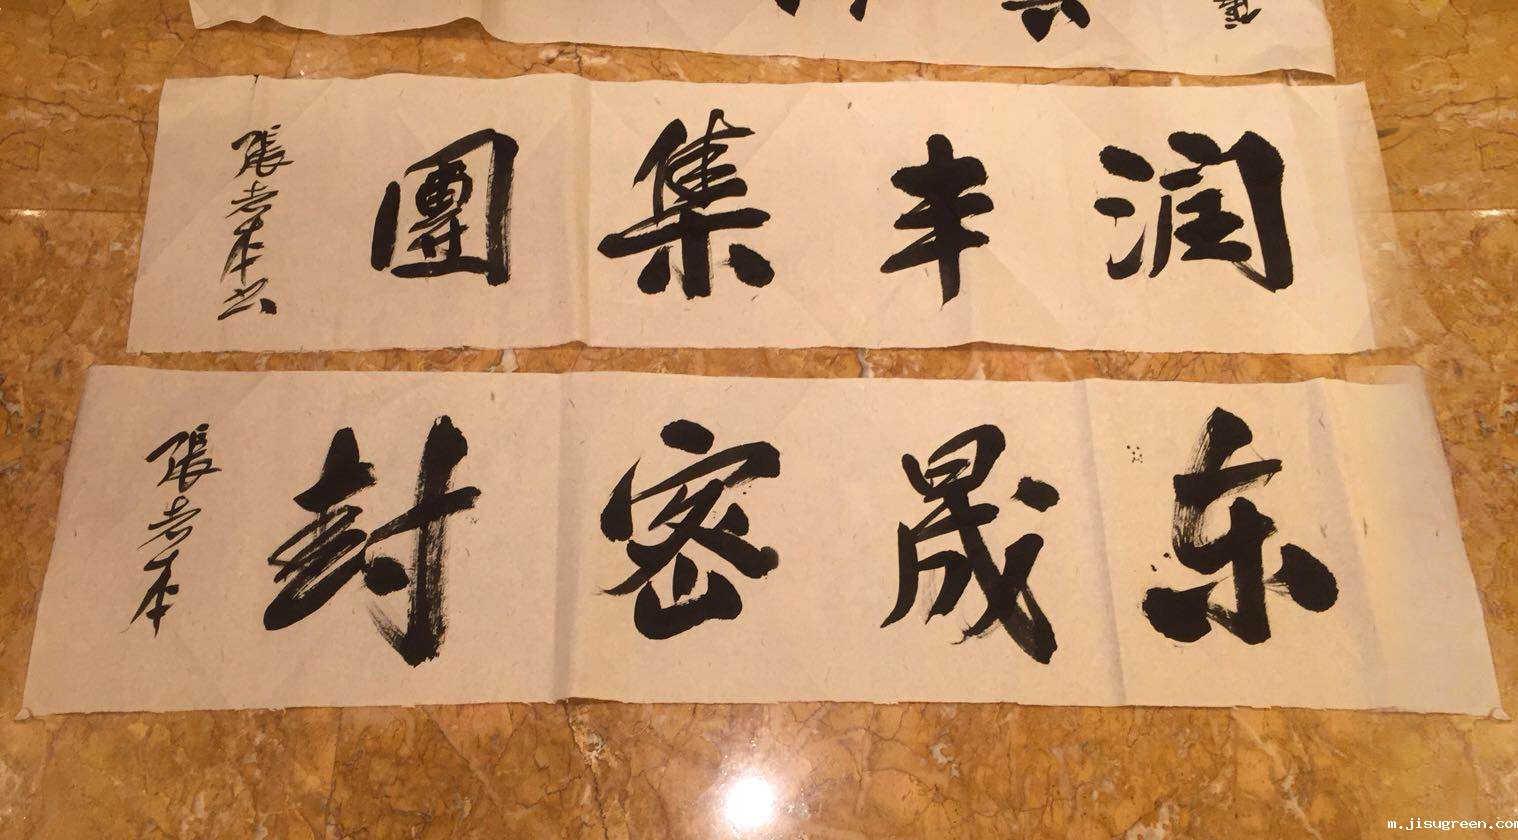 润丰集團
張老本书
东晟密封
張老本
m.jisugreen.com